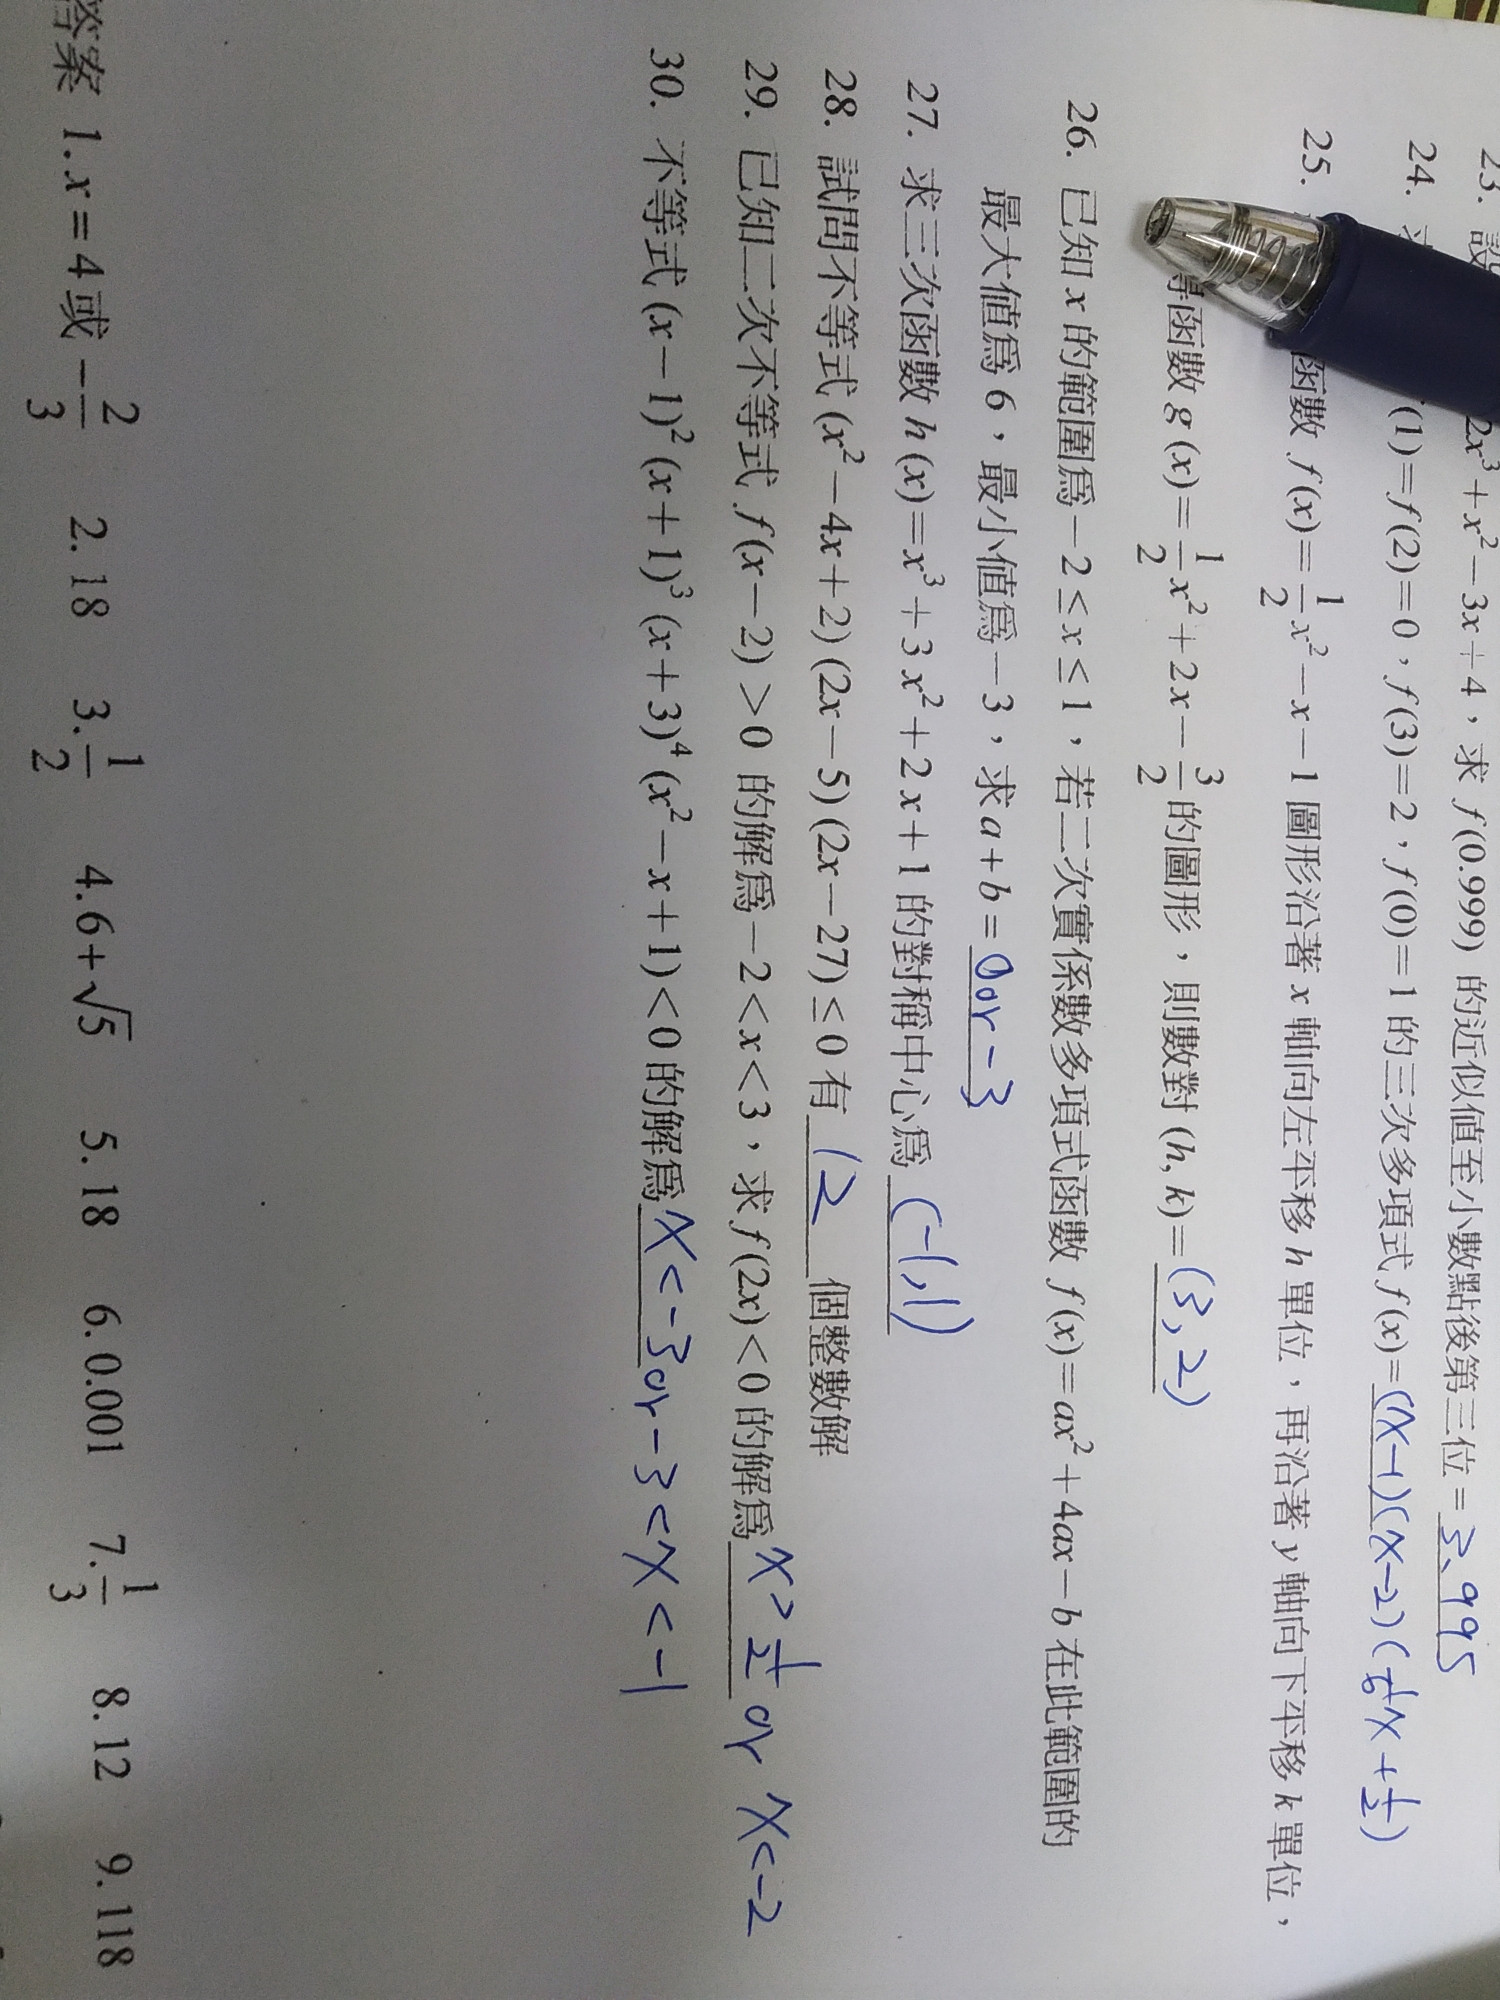 23. 設 2x³+x²−3x+4，求 f(0.999) 的近似值至小數點後第三位 = 3.995
24. (1)=f(2)=0，f(3)=2，f(0)=1 的三次多項式 f(x)=(x-1)(x-2)(1/6x+1/2)
25. 函數 f(x)=1/2x²−x−1 圖形沿著 x 軸向左平移 h 單位，再沿著 y 軸向下平移 k 單位，
得函數 g(x)=1/2x²+2x−3/2 的圖形，則數對 (h, k)=(3,2)
26. 已知 x 的範圍為 −2≤x≤1，若二次實係數多項式函數 f(x)=ax²+4ax−b 在此範圍的
最大值為 6，最小值為 −3，求 a+b=0or-3
27. 求三次函數 h(x)=x³+3x²+2x+1 的對稱中心為 (-1,1)
28. 試問不等式 (x²−4x+2)(2x−5)(2x−27)≤0 有 12 個整數解
29. 已知二次不等式 f(x−2)>0 的解為 −2<x<3，求 f(2x)<0 的解為 x>1/2 or x<-2
30. 不等式 (x−1)²(x+1)³(x+3)⁴(x²−x+1)<0 的解為 x<-3or-3<x<-1
答案 1. x=4 或 −2/3 2. 18 3. 1/2 4. 6+√5 5. 18 6. 0.001 7. 1/3 8. 12 9. 118